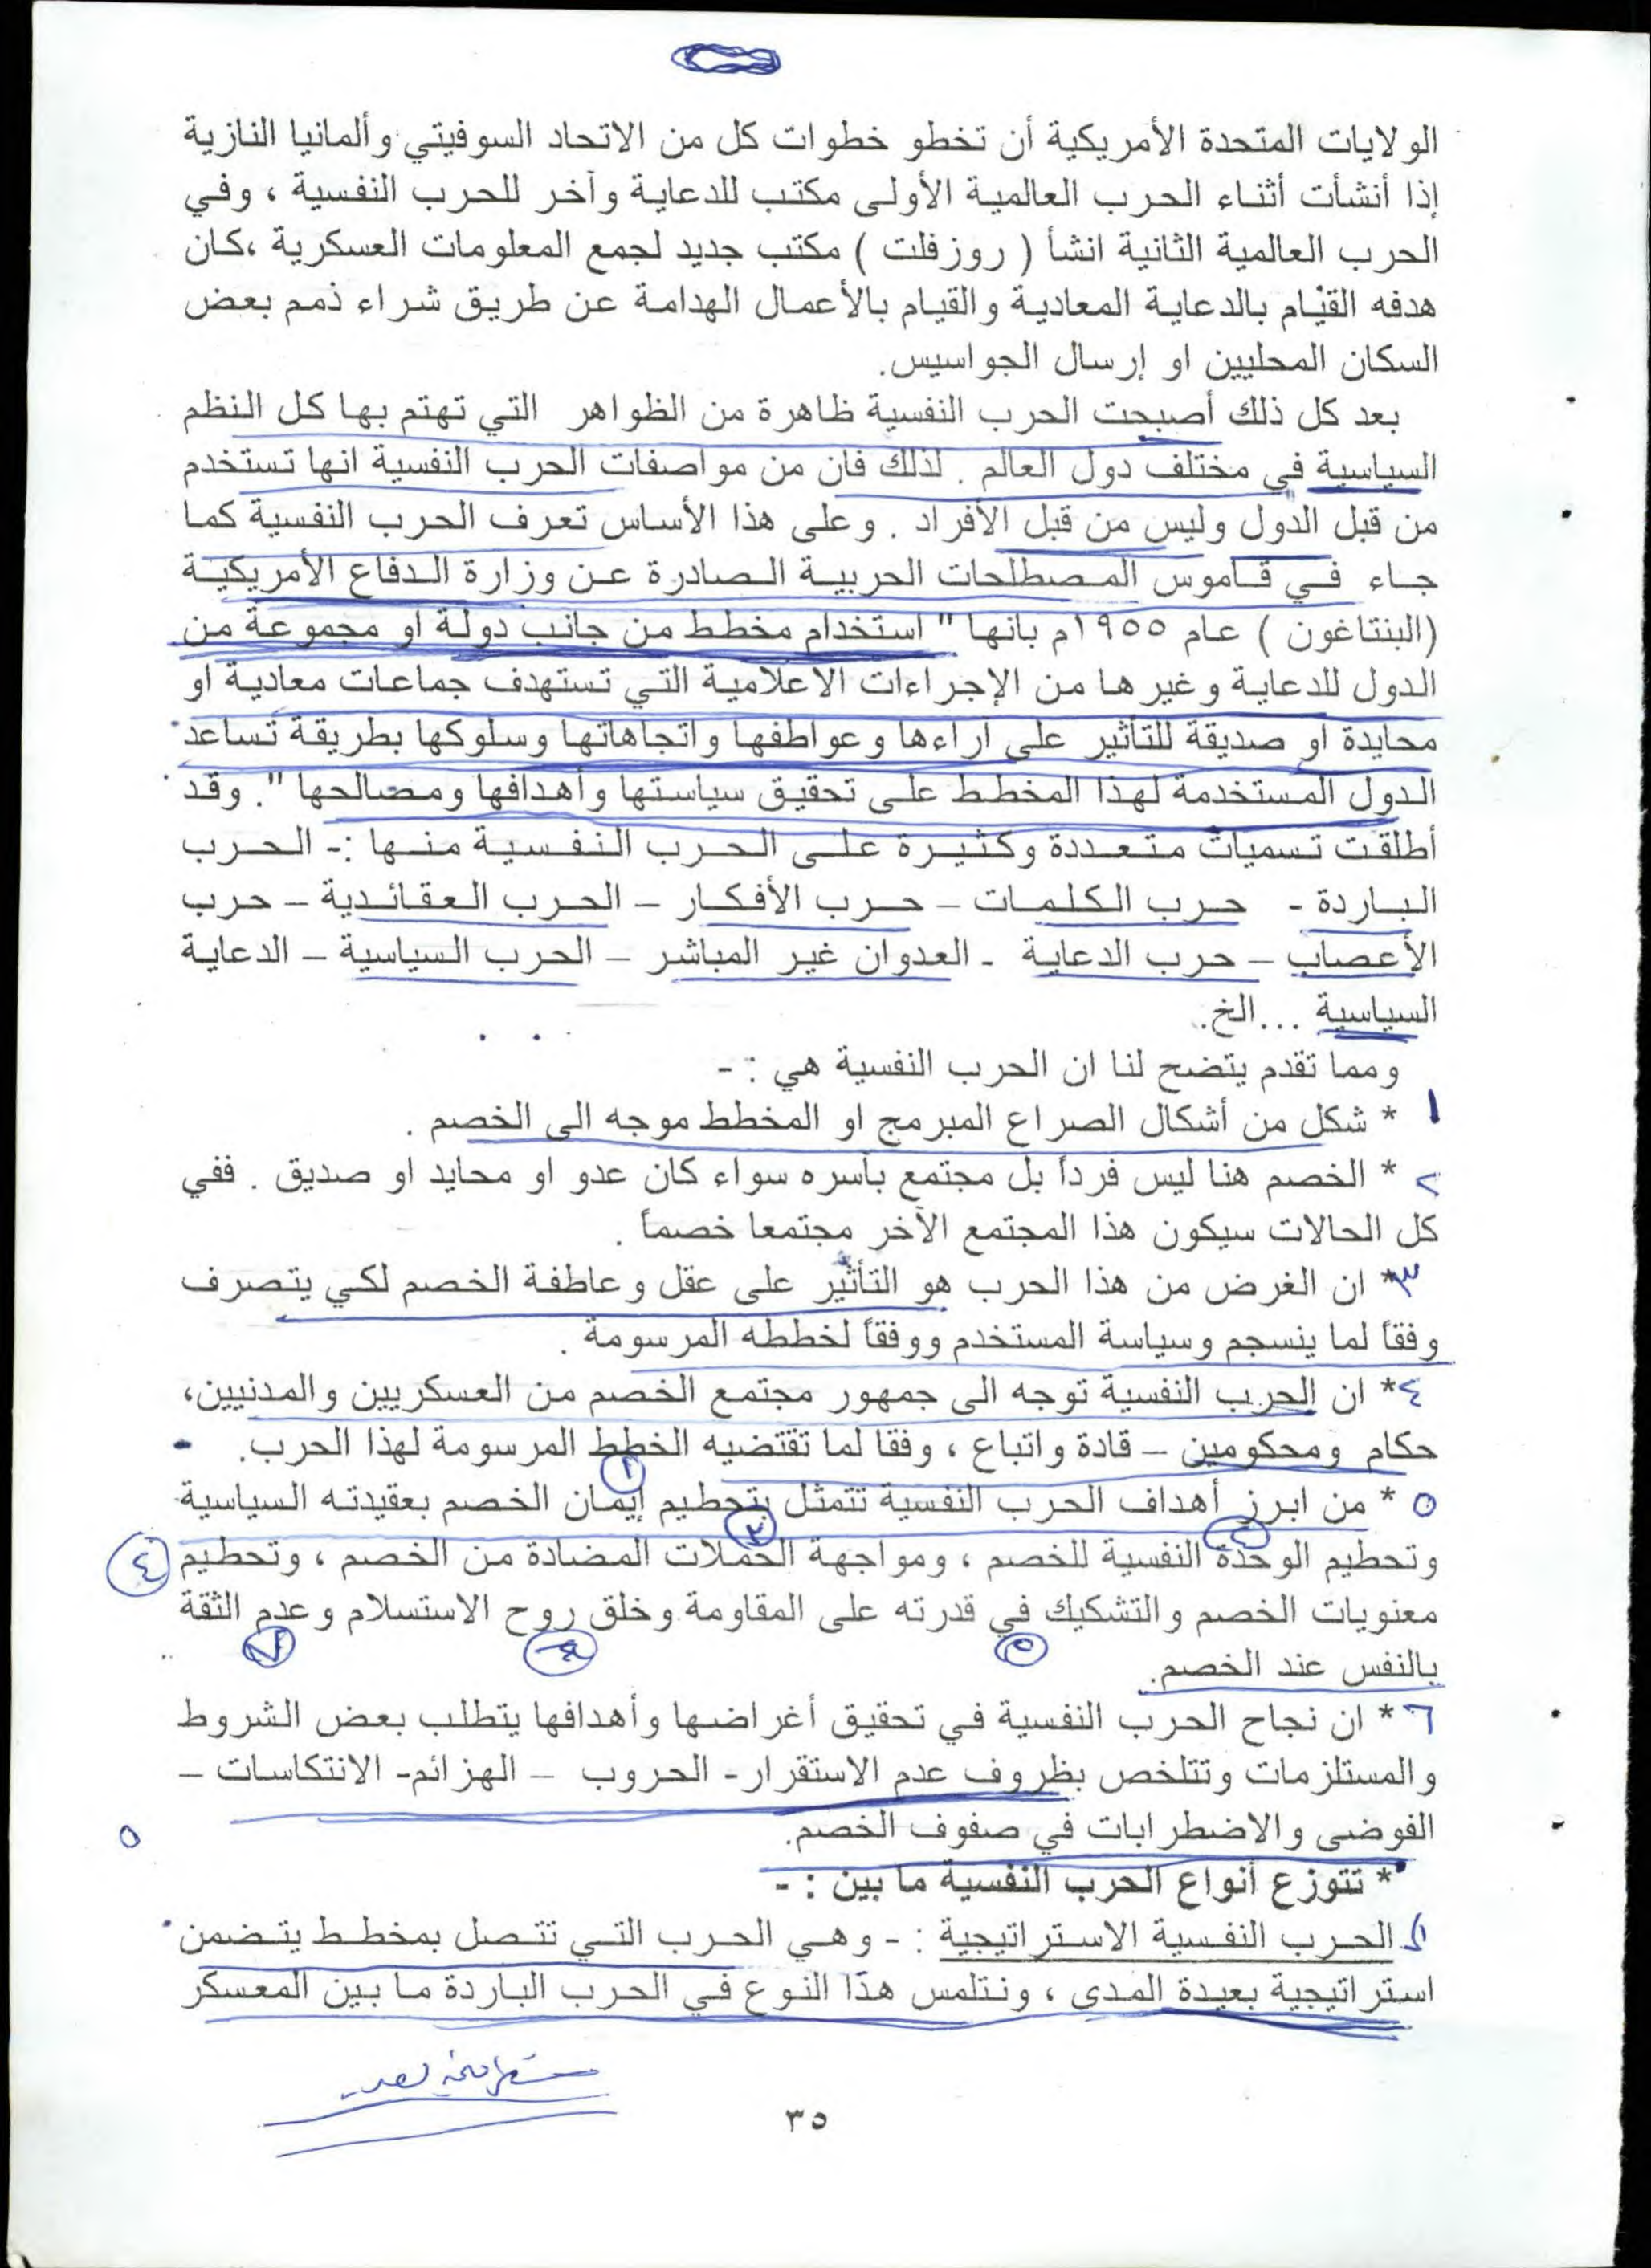 الولايات المتحدة الأمريكية أن تخطو خطوات كل من الاتحاد السوفيتي وألمانيا النازية
إذا أنشأت أثناء الحرب العالمية الأولى مكتب للدعاية وآخر للحرب النفسية ، وفي
الحرب العالمية الثانية انشأ ( روزفلت ) مكتب جديد لجمع المعلومات العسكرية ،كان
هدفه القيام بالدعاية المعادية والقيام بالأعمال الهدامة عن طريق شراء ذمم بعض
السكان المحليين او إرسال الجواسيس.
بعد كل ذلك أصبحت الحرب النفسية ظاهرة من الظواهر التي تهتم بها كل النظم
السياسية في مختلف دول العالم . لذلك فان من مواصفات الحرب النفسية انها تستخدم
من قبل الدول وليس من قبل الأفراد . وعلى هذا الأساس تعرف الحرب النفسية كما
جاء في قاموس المصطلحات الحربية الصادرة عن وزارة الدفاع الأمريكية
(البنتاغون ) عام ١٩٥٥م بانها " استخدام مخطط من جانب دولة او مجموعة من
الدول للدعاية وغيرها من الإجراءات الاعلامية التي تستهدف جماعات معادية او
محايدة او صديقة للتأثير على اراءها وعواطفها واتجاهاتها وسلوكها بطريقة تساعد
الدول المستخدمة لهذا المخطط على تحقيق سياستها وأهدافها ومصالحها ". وقد
أطلقت تسميات متعددة وكثيرة على الحرب النفسية منها :- الحرب
الباردة - حرب الكلمات – حرب الأفكار – الحرب العقائدية – حرب
الأعصاب – حرب الدعاية - العدوان غير المباشر – الحرب السياسية – الدعاية
السياسية ...الخ.
ومما تقدم يتضح لنا ان الحرب النفسية هي : -
١ * شكل من أشكال الصراع المبرمج او المخطط موجه الى الخصم .
٢ * الخصم هنا ليس فرداً بل مجتمع بأسره سواء كان عدو او محايد او صديق . ففي
كل الحالات سيكون هذا المجتمع الآخر مجتمعا خصماً .
٣* ان الغرض من هذا الحرب هو التأثير على عقل وعاطفة الخصم لكي يتصرف
وفقاً لما ينسجم وسياسة المستخدم ووفقاً لخططه المرسومة .
٤* ان الحرب النفسية توجه الى جمهور مجتمع الخصم من العسكريين والمدنيين،
حكام ومحكومين – قادة واتباع ، وفقا لما تقتضيه الخطط المرسومة لهذا الحرب.
٥ * من ابرز أهداف الحرب النفسية تتمثل بتحطيم إيمان الخصم بعقيدته السياسية
وتحطيم الوحدة النفسية للخصم ، ومواجهة الحملات المضادة من الخصم ، وتحطيم ٤
معنويات الخصم والتشكيك في قدرته على المقاومة وخلق روح الاستسلام وعدم الثقة
بالنفس عند الخصم.
٦ * ان نجاح الحرب النفسية في تحقيق أغراضها وأهدافها يتطلب بعض الشروط
والمستلزمات وتتلخص بظروف عدم الاستقرار- الحروب – الهزائم- الانتكاسات –
الفوضى والاضطرابات في صفوف الخصم. ٥
* تتوزع أنواع الحرب النفسية ما بين : -
الحرب النفسية الاستراتيجية : - وهي الحرب التي تتصل بمخطط يتضمن
استراتيجية بعيدة المدى ، ونتلمس هذا النوع في الحرب الباردة ما بين المعسكر
٣٥